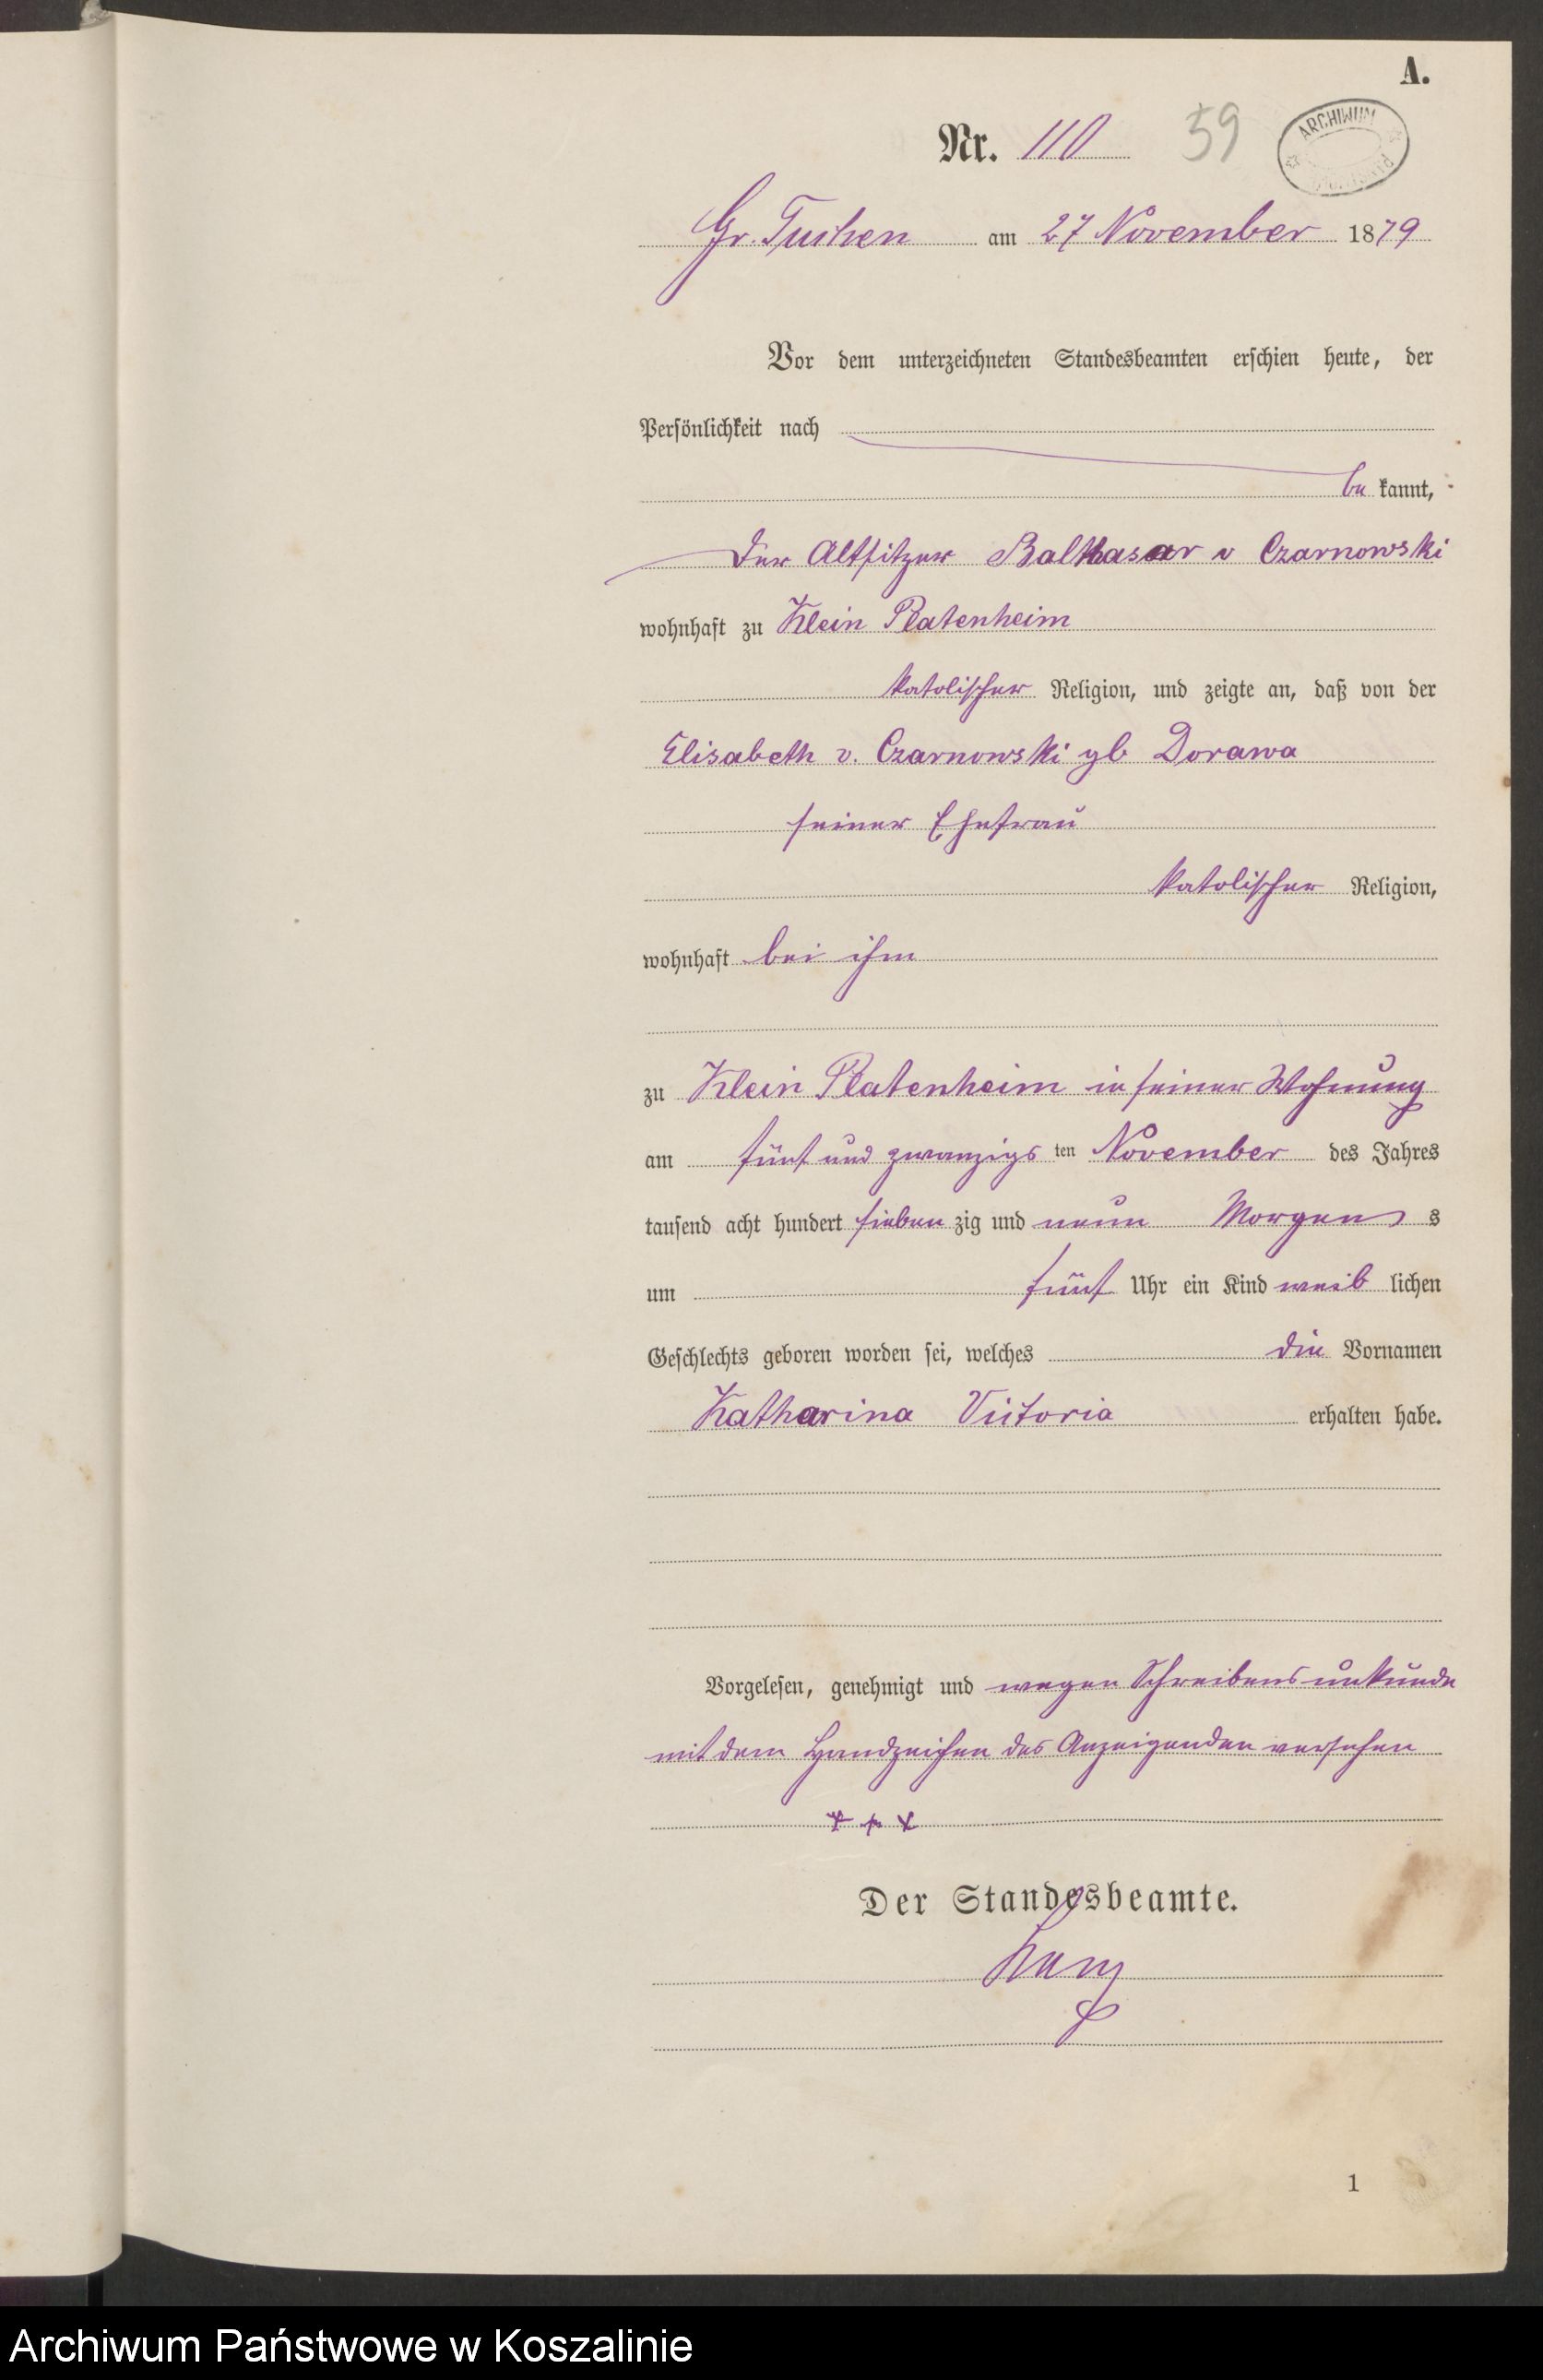 A.
Nr. 110 59
ARCHIWUM
Gr. Tuchen am 27 November 1879
Vor dem unterzeichneten Standesbeamten erschien heute, der
Persönlichkeit nach
be kannt,
Der Altsitzer Balthasar v Czarnowski
wohnhaft zu Klein Platenheim
katolischer Religion, und zeigte an, daß von der
Elisabeth v. Czarnowski gb Dorawa
seiner Ehefrau
katolischer Religion,
wohnhaft bei ihm
zu Klein Platenheim in seiner Wohnung
am fünf und zwanzigs ten November des Jahres
tausend acht hundert sieben zig und neun Morgens s
um fünf Uhr ein Kind weib lichen
Geschlechts geboren worden sei, welches die Vornamen
Katharina Victoria erhalten habe.
Vorgelesen, genehmigt und wegen Schreibensunkunde
mit dem Handzeichen des Anzeigenden versehen
+ + +
Der Standesbeamte.
1
Archiwum Państwowe w Koszalinie